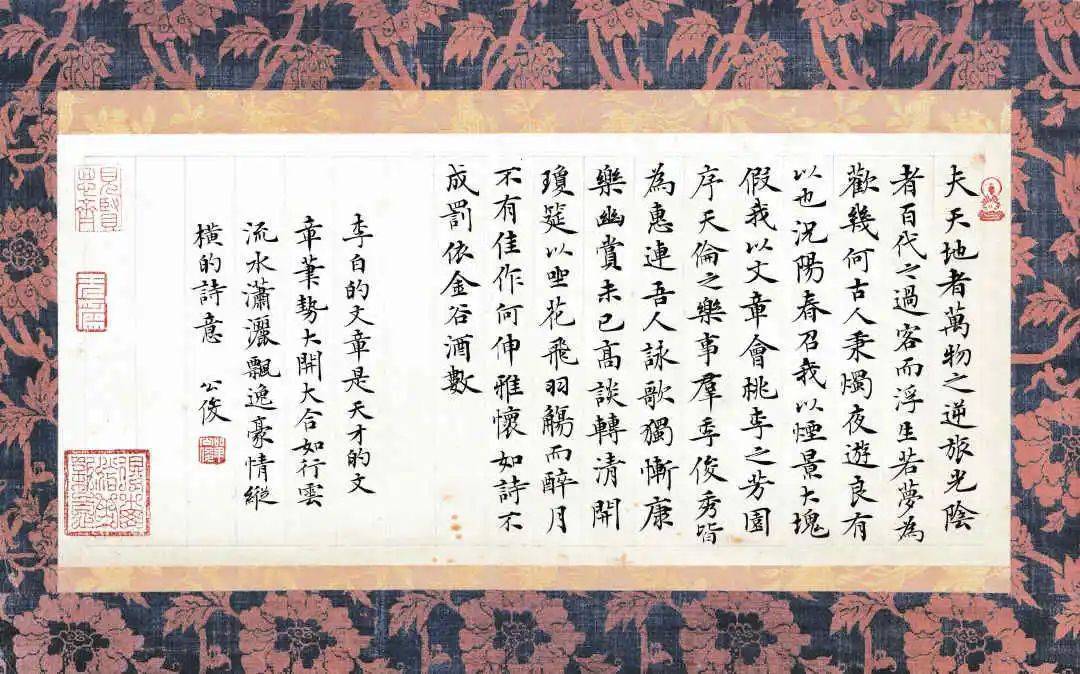 夫天地者萬物之逆旅光陰
者百代之過客而浮生若夢為
歡幾何古人秉燭夜遊良有
以也況陽春召我以煙景大塊
假我以文章會桃李之芳園
序天倫之樂事羣季俊秀皆
為惠連吾人詠歌獨慚康
樂幽賞未已高談轉清開
瓊筵以坐花飛羽觴而醉月
不有佳作何伸雅懷如詩不
成罰依金谷酒數
李白的文章是天才的文
章筆勢大開大合如行雲
流水瀟灑飄逸豪情縱
橫的詩意 公俊
見賢
思齊